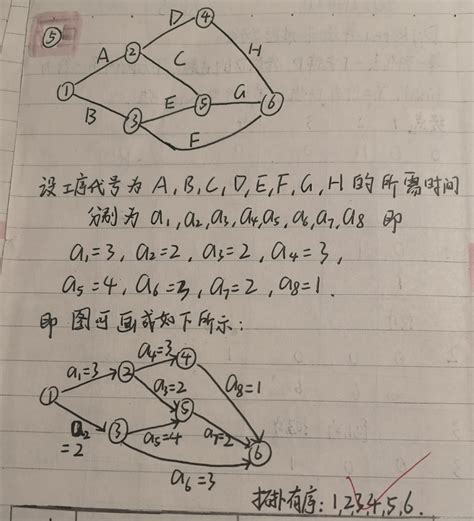 ⑤
D ④
A ② C H
① E ⑤ G ⑥
B ③ F
设工序代号为 A,B,C,D,E,F,G,H 的所需时间
分别为 a₁,a₂,a₃,a₄,a₅,a₆,a₇,a₈ 即
a₁=3, a₂=2, a₃=2, a₄=3,
a₅=4, a₆=3, a₇=2, a₈=1.
即图可画成如下所示:
a₄=3 ④
a₁=3 ② a₃=2 a₈=1
① ⑤
③ a₅=4 a₇=2 ⑥
a₂
=2
a₆=3
拓扑有序: 1,2,3,4,5,6.